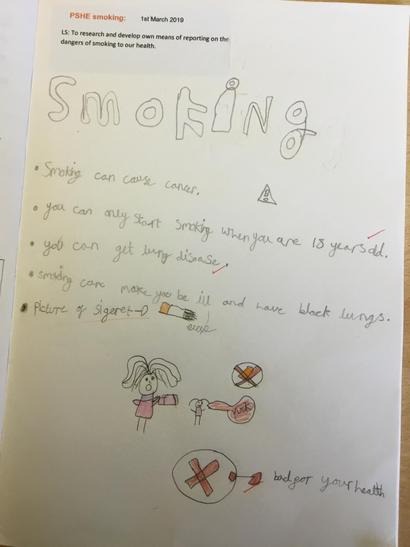 PSHE smoking: 1st March 2019
LS: To research and develop own means of reporting on the
dangers of smoking to our health.
SmoKiNg
• Smoking can cause cancer.
• you can only start smoking when you are 18 years old.
• you can get lung disease.
• smoking can make you be ill and have black lungs.
• Picture of sigeret
yuck
bad for your health